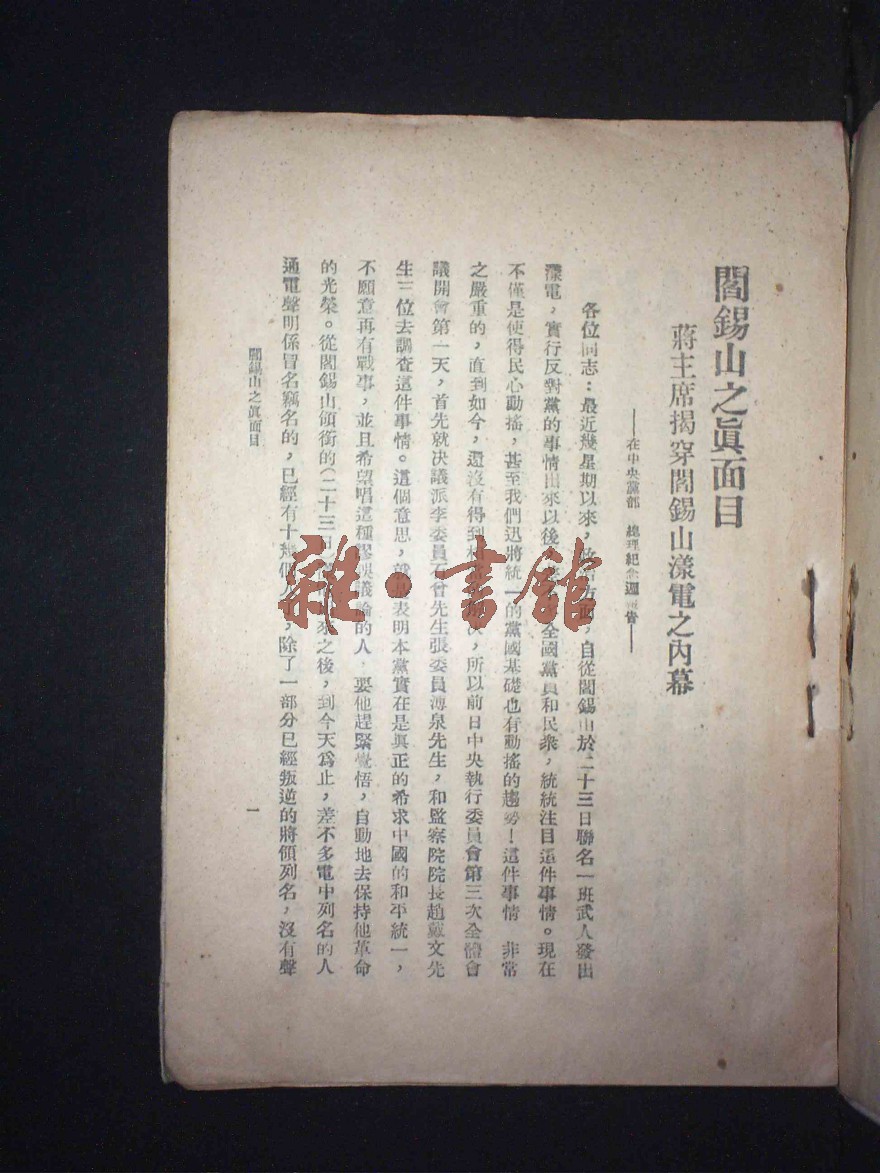 閻錫山之眞面目
蔣主席揭穿閻錫山漾電之內幕
——在中央黨部 總理紀念週報告——
各位同志：最近幾星期以來，政治方面，自從閻錫山於二十三日聯名一班武人發出
漾電，實行反對黨的事情出來以後，全國黨員和民衆，統統注目這件事情。現在
不僅是使得民心動搖，甚至我們迅將統一的黨國基礎也有動搖的趨勢！這件事情 非常
之嚴重的，直到如今，還沒有得到 決，所以前日中央執行委員會第三次全體會
議開會第一天，首先就决議派李委員石曾先生張委員溥泉先生，和監察院院長趙戴文先
生三位去調查這件事情。這個意思，就是表明本黨實在是眞正的希求中國的和平統一，
不願意再有戰事，並且希望唱這種謬誤議論的人，要他趕緊覺悟，自動地去保持他革命
的光榮。從閻錫山領銜的（二十三日 來之後，到今天爲止，差不多電中列名的人
通電聲明係冒名竊名的，已經有十幾個人了，除了一部分已經叛逆的將領列名，沒有聲
閻錫山之眞面目
一
雜·書館